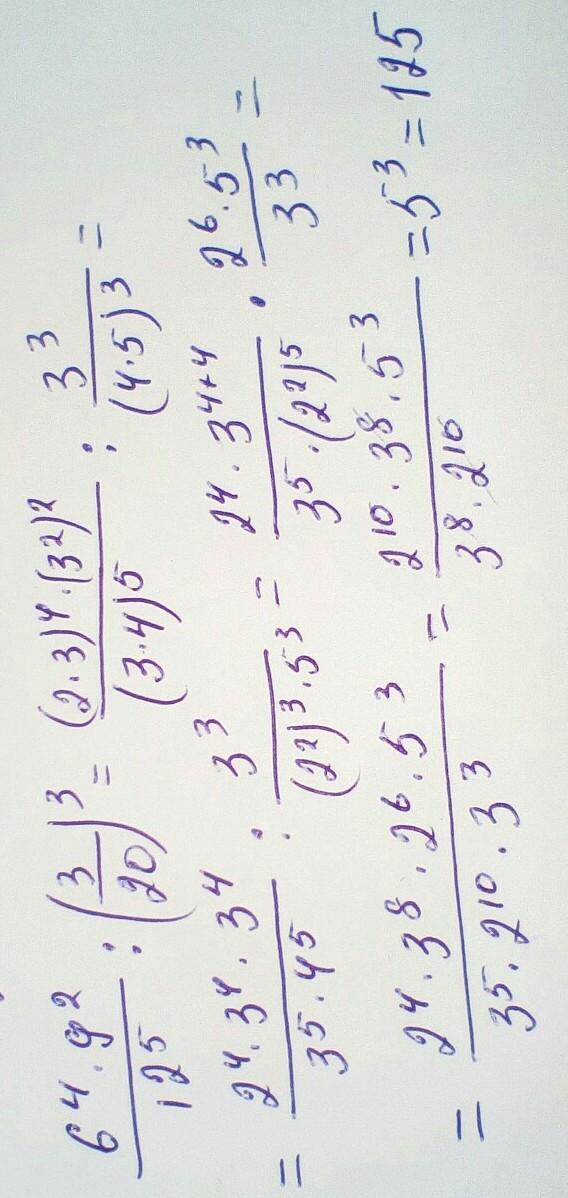 6⁴·9²/12⁵ : (3/20)³ = (2·3)⁴·(3²)²/(3·4)⁵ : 3³/(4·5)³ =
= 2⁴·3⁴·3⁴/3⁵·4⁵ : 3³/(2²)³·5³ = 2⁴·3⁴⁺⁴/3⁵·(2²)⁵ · 2⁶·5³/3³ =
= 2⁴·3⁸·2⁶·5³/3⁵·2¹⁰·3³ = 2¹⁰·3⁸·5³/3⁸·2¹⁰ = 5³ = 125